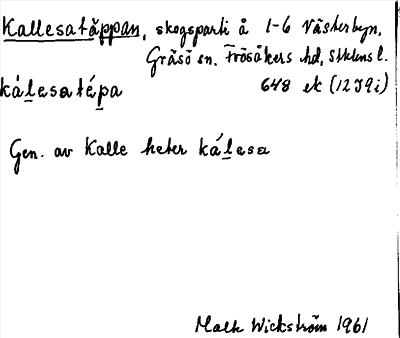 Kallesatäppan, skogsparti å 1-6 Västerbyn,
Gräsö sn. Frösåkers hd, Stklms l.
kálesatépa 648 ek (12J9i)
Gen. av Kalle heter kálesa
Malte Wickström 1961